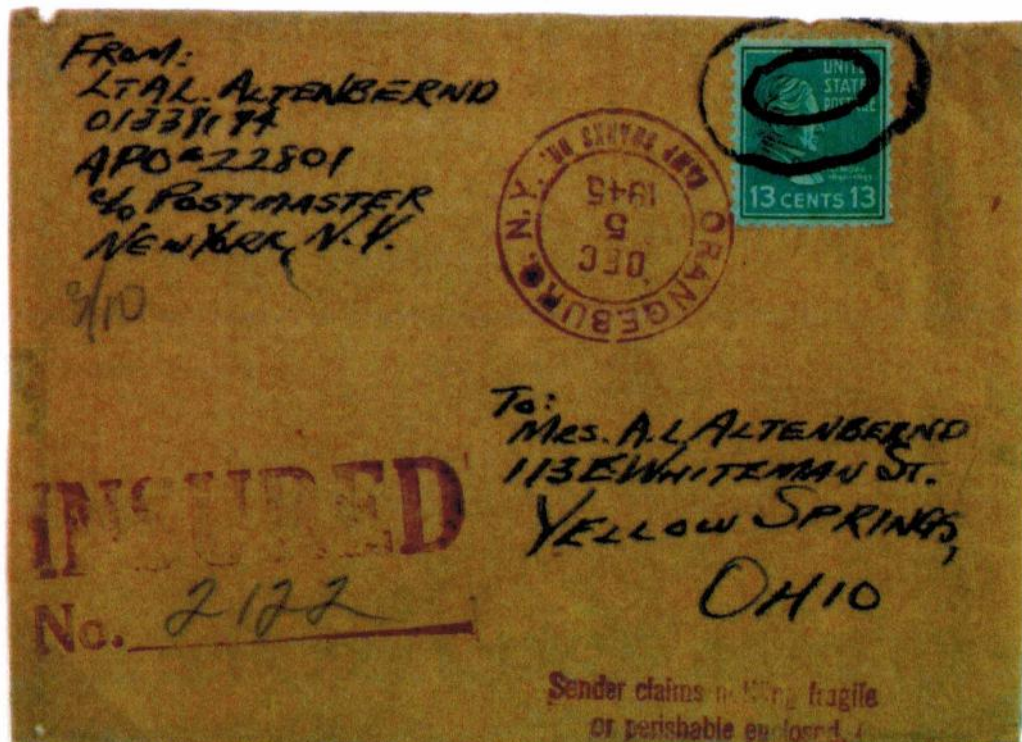 From:
LT A.L. ALTENBERND
APO #22801
c/o POSTMASTER
NEW YORK, N.Y.
3/10
UNITED
STATES
POSTAGE
13 CENTS 13
ORANGEBURG, N.Y.
CAMP SHANKS BR.
DEC
5
1945
To:
MRS. A.L. ALTENBERND
113 E WHITEMAN ST.
YELLOW SPRINGS,
OHIO
INSURED
No. 2122
Sender claims nothing fragile
or perishable enclosed.